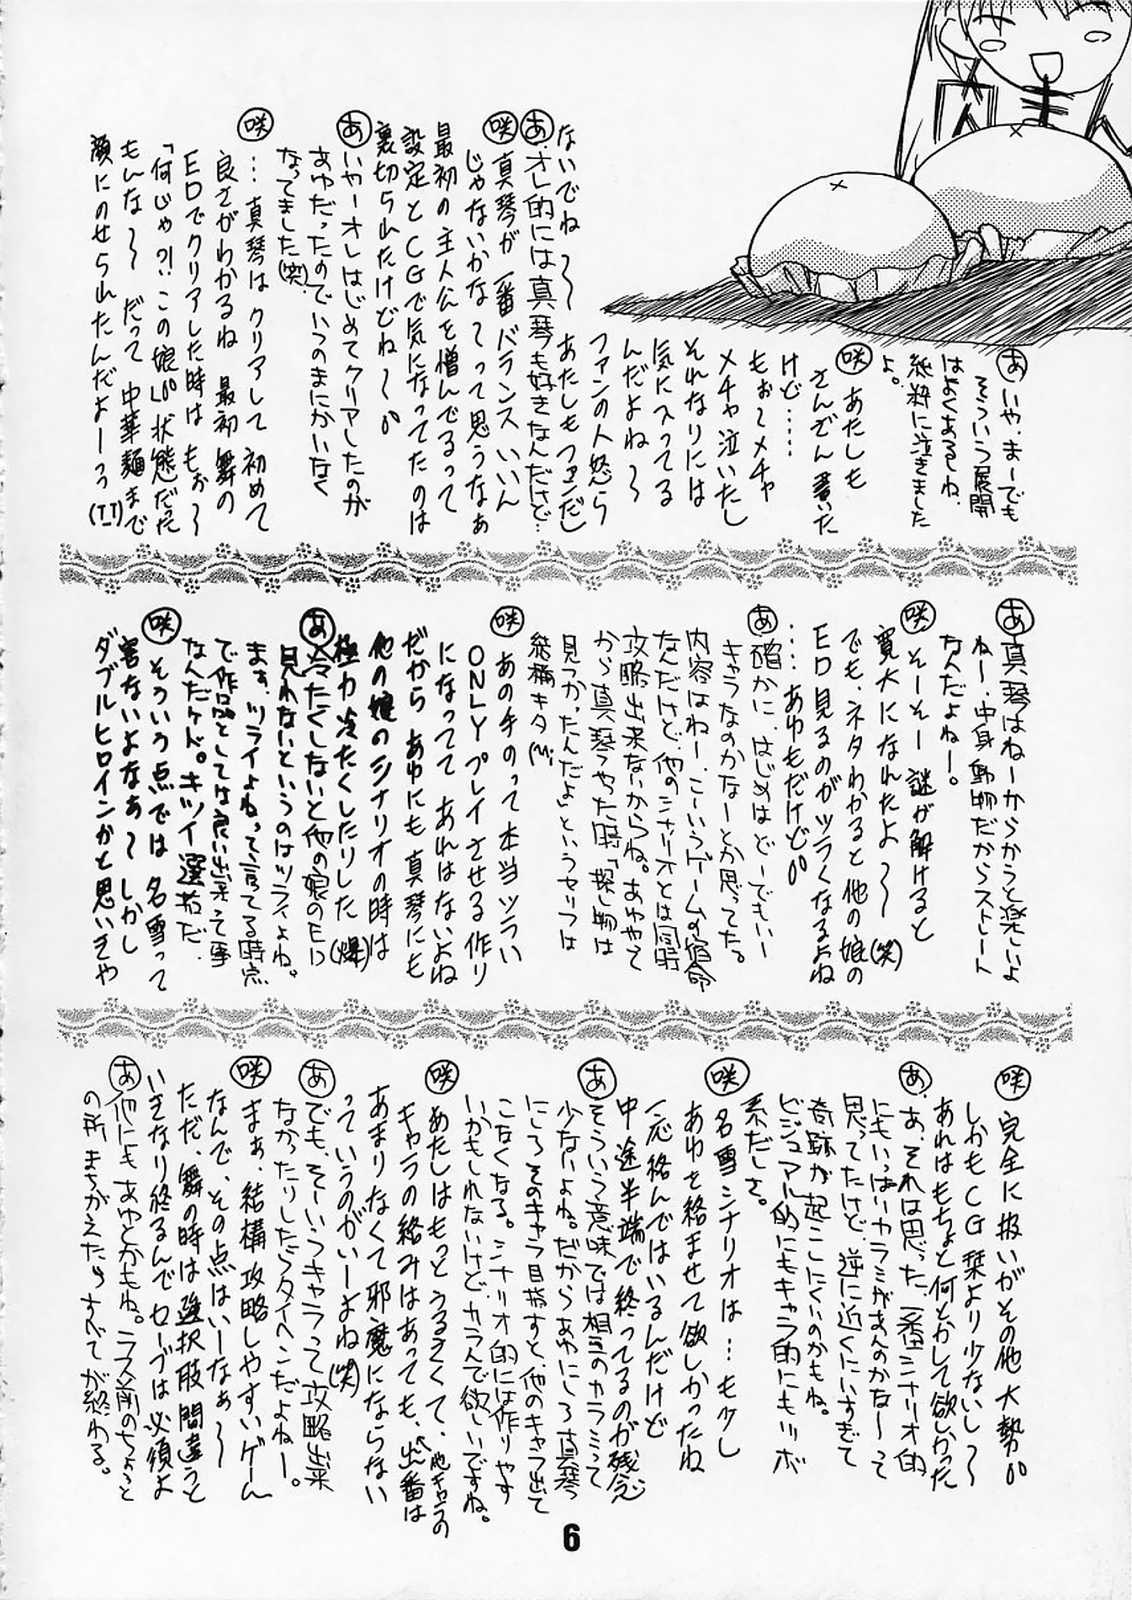 あ いや、まーでも
そういう展開
はよくあるしね、
純粋に泣きました
よ。
咲 あたしも
さんざん書いた
けど……
もぉ〜メチャ
メチャ泣いたし
それなりには
気に入ってる
んだよね〜
ファンの人怒ら
ないでね〜〜 あたしもファンだし
あ オレ的には真琴も好きなんだけど…
咲 真琴が一番バランスいいん
じゃないかなーって思うなぁ
最初の主人公を憎んでるって
設定とCGで気になってたのは
裏切られたけどね〜
あ いやーオレはじめてクリアしたのが
あゆだったのでいつのまにかいなく
なってました(笑)
咲 …真琴はクリアして初めて
良さがわかるね 最初舞の
EDでクリアした時はもぉ〜
「何じゃ?!この娘」状態だった
もんな〜〜 だって中華麺まで
顔にのせられたんだよーっっ
(TT)
あ 真琴はねーからかうと楽しいよ
ねー、中身動物だからストレート
なんだよねー。
咲 そーそー 謎が解けると
寛大になれたよ〜〜(笑)
でも、ネタわかると他の娘の
ED見るのがツラくなるよね
……あゆもだけど
あ 確かに、はじめはどーでもいー
キャラなのかなーとか思ってた。
内容はねー、こーいうゲームの宿命
なんだけど、他のシナリオとは同時
攻略出来ないからね。あゆやって
から真琴やった時「探し物は
見つかったんだよ」というセリフは
結構キタ
咲 あの手のって本当ツライ
ONLYプレイさせる作り
になってて あれはないよね
だから あゆにも真琴にも
他の娘のシナリオの時は
極力冷たくしたりした(爆)
あ 冷たくしないと他の娘のED
見れないというのはツライよね。
まぁ、ツライよねって言ってる時点
で作品としては良い出来って事
なんだケド。キツイ選択だ
咲 そういう点では名雪って
害ないよなぁ〜 しかし
ダブルヒロインかと思いきや
咲 完全に扱いがその他大勢
しかもCG栞より少ないし〜
あれはもちょと何とかして欲しかった
あ あ、それは思った、一番シナリオ的
にもいっぱいカラミがあんのかなーって
思ってたけど、逆に近くにいすぎて
奇跡が起こりにくいのかもね。
ビジュアル的にもキャラ的にもリッポ
系だしさ。
咲 名雪シナリオは…も少し
あゆを絡ませて欲しかったね
一応絡んではいるんだけど
中途半端で終ってるのが残念
あ そういう意味では相互のカラミって
少ないよね。だからあゆにしろ真琴
にしろそのキャラ目指すと、他のキャラ出て
こなくなる。シナリオ的には作りやす
いかもしれないけど、カラんで欲しいですね。
咲 あたしはもっとうるさくて、他キャラの
キャラの絡みはあっても、出番は
あまりなくて邪魔にならない
っていうのがいーよね(笑)
あ でも、そーいうキャラって攻略出来
なかったりしたらタイヘンだよねー。
咲 まぁ、結構攻略しやすいゲーム
なんで、その点はいーなぁ〜
ただ、舞の時は選択肢間違うと
いきなり終るんでセーブは必須よ
あ 他にもあゆとかもね。ラス前のちょっと
の所 まちがえたらすべてが終わる。
6